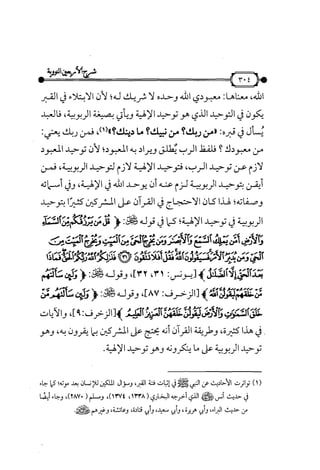 شرح الأربعين النووية
٣٠٤
الله، معناها: معبودي الله وحده لا شريك له؛ لأن الابتلاء في القبر
يكون في التوحيد الذي هو توحيد الإلهية ويأتي بصيغة الربوبية، فالعبد
يُسأل في قبره: «من ربك؟ من نبيك؟ ما دينك؟»(١)، فمن ربك يعني:
من معبودك ؟ فلفظ الرب يُطلق ويراد به المعبود؛ لأن توحيد المعبود
لازم عن توحيد الرب، فتوحيد الإلهية لازم لتوحيد الربوبية، فمن
أيقن بتوحيد الربوبية لزم عنه أن يوحد الله في الإلهية، وفي أسمائه
وصفاته؛ لهذا كان الاحتجاج في القرآن على المشركين كثيرًا بتوحيد
الربوبية في توحيد الإلهية؛ كما في قوله ﷻ: ﴿قُلْ مَن يَرْزُقُكُم مِّنَ السَّمَاءِ
وَالْأَرْضِ أَمَّن يَمْلِكُ السَّمْعَ وَالْأَبْصَارَ وَمَن يُخْرِجُ الْحَيَّ مِنَ الْمَيِّتِ وَيُخْرِجُ الْمَيِّتَ مِنَ
الْحَيِّ وَمَن يُدَبِّرُ الْأَمْرَ فَسَيَقُولُونَ اللَّهُ فَقُلْ أَفَلَا تَتَّقُونَ ﴿٣١﴾ فَذَلِكُمُ اللَّهُ رَبُّكُمُ الْحَقُّ فَمَاذَا
بَعْدَ الْحَقِّ إِلَّا الضَّلَالُ﴾ [يونس: ٣١، ٣٢]، وقوله ﷻ: ﴿وَلَئِن سَأَلْتَهُم
مَّنْ خَلَقَهُمْ لَيَقُولُنَّ اللَّهُ﴾ [الزخرف: ٨٧]، وقوله ﷻ: ﴿وَلَئِن سَأَلْتَهُم مَّنْ
خَلَقَ السَّمَاوَاتِ وَالْأَرْضَ لَيَقُولُنَّ خَلَقَهُنَّ الْعَزِيزُ الْعَلِيمُ﴾ [الزخرف: ٩]، والآيات
في هذا كثيرة، وطريقة القرآن أنه يحتج على المشركين بما يقرون به، وهو
توحيد الربوبية على ما ينكرونه وهو توحيد الإلهية.
(١) تواترت الأحاديث عن النبي ﷺ في إثبات فتنة القبر، وسؤال الملكين للإنسان بعد موته؛ كما جاء
في حديث أنس رضي الله عنه الذي أخرجه البخاري (١٣٣٨، ١٣٧٤)، ومسلم (٢٨٧٠)، وجاء أيضًا
من حديث البراء، وأبي هريرة، وأبي سعيد، وأبي قتادة، وعائشة، وغيرهم